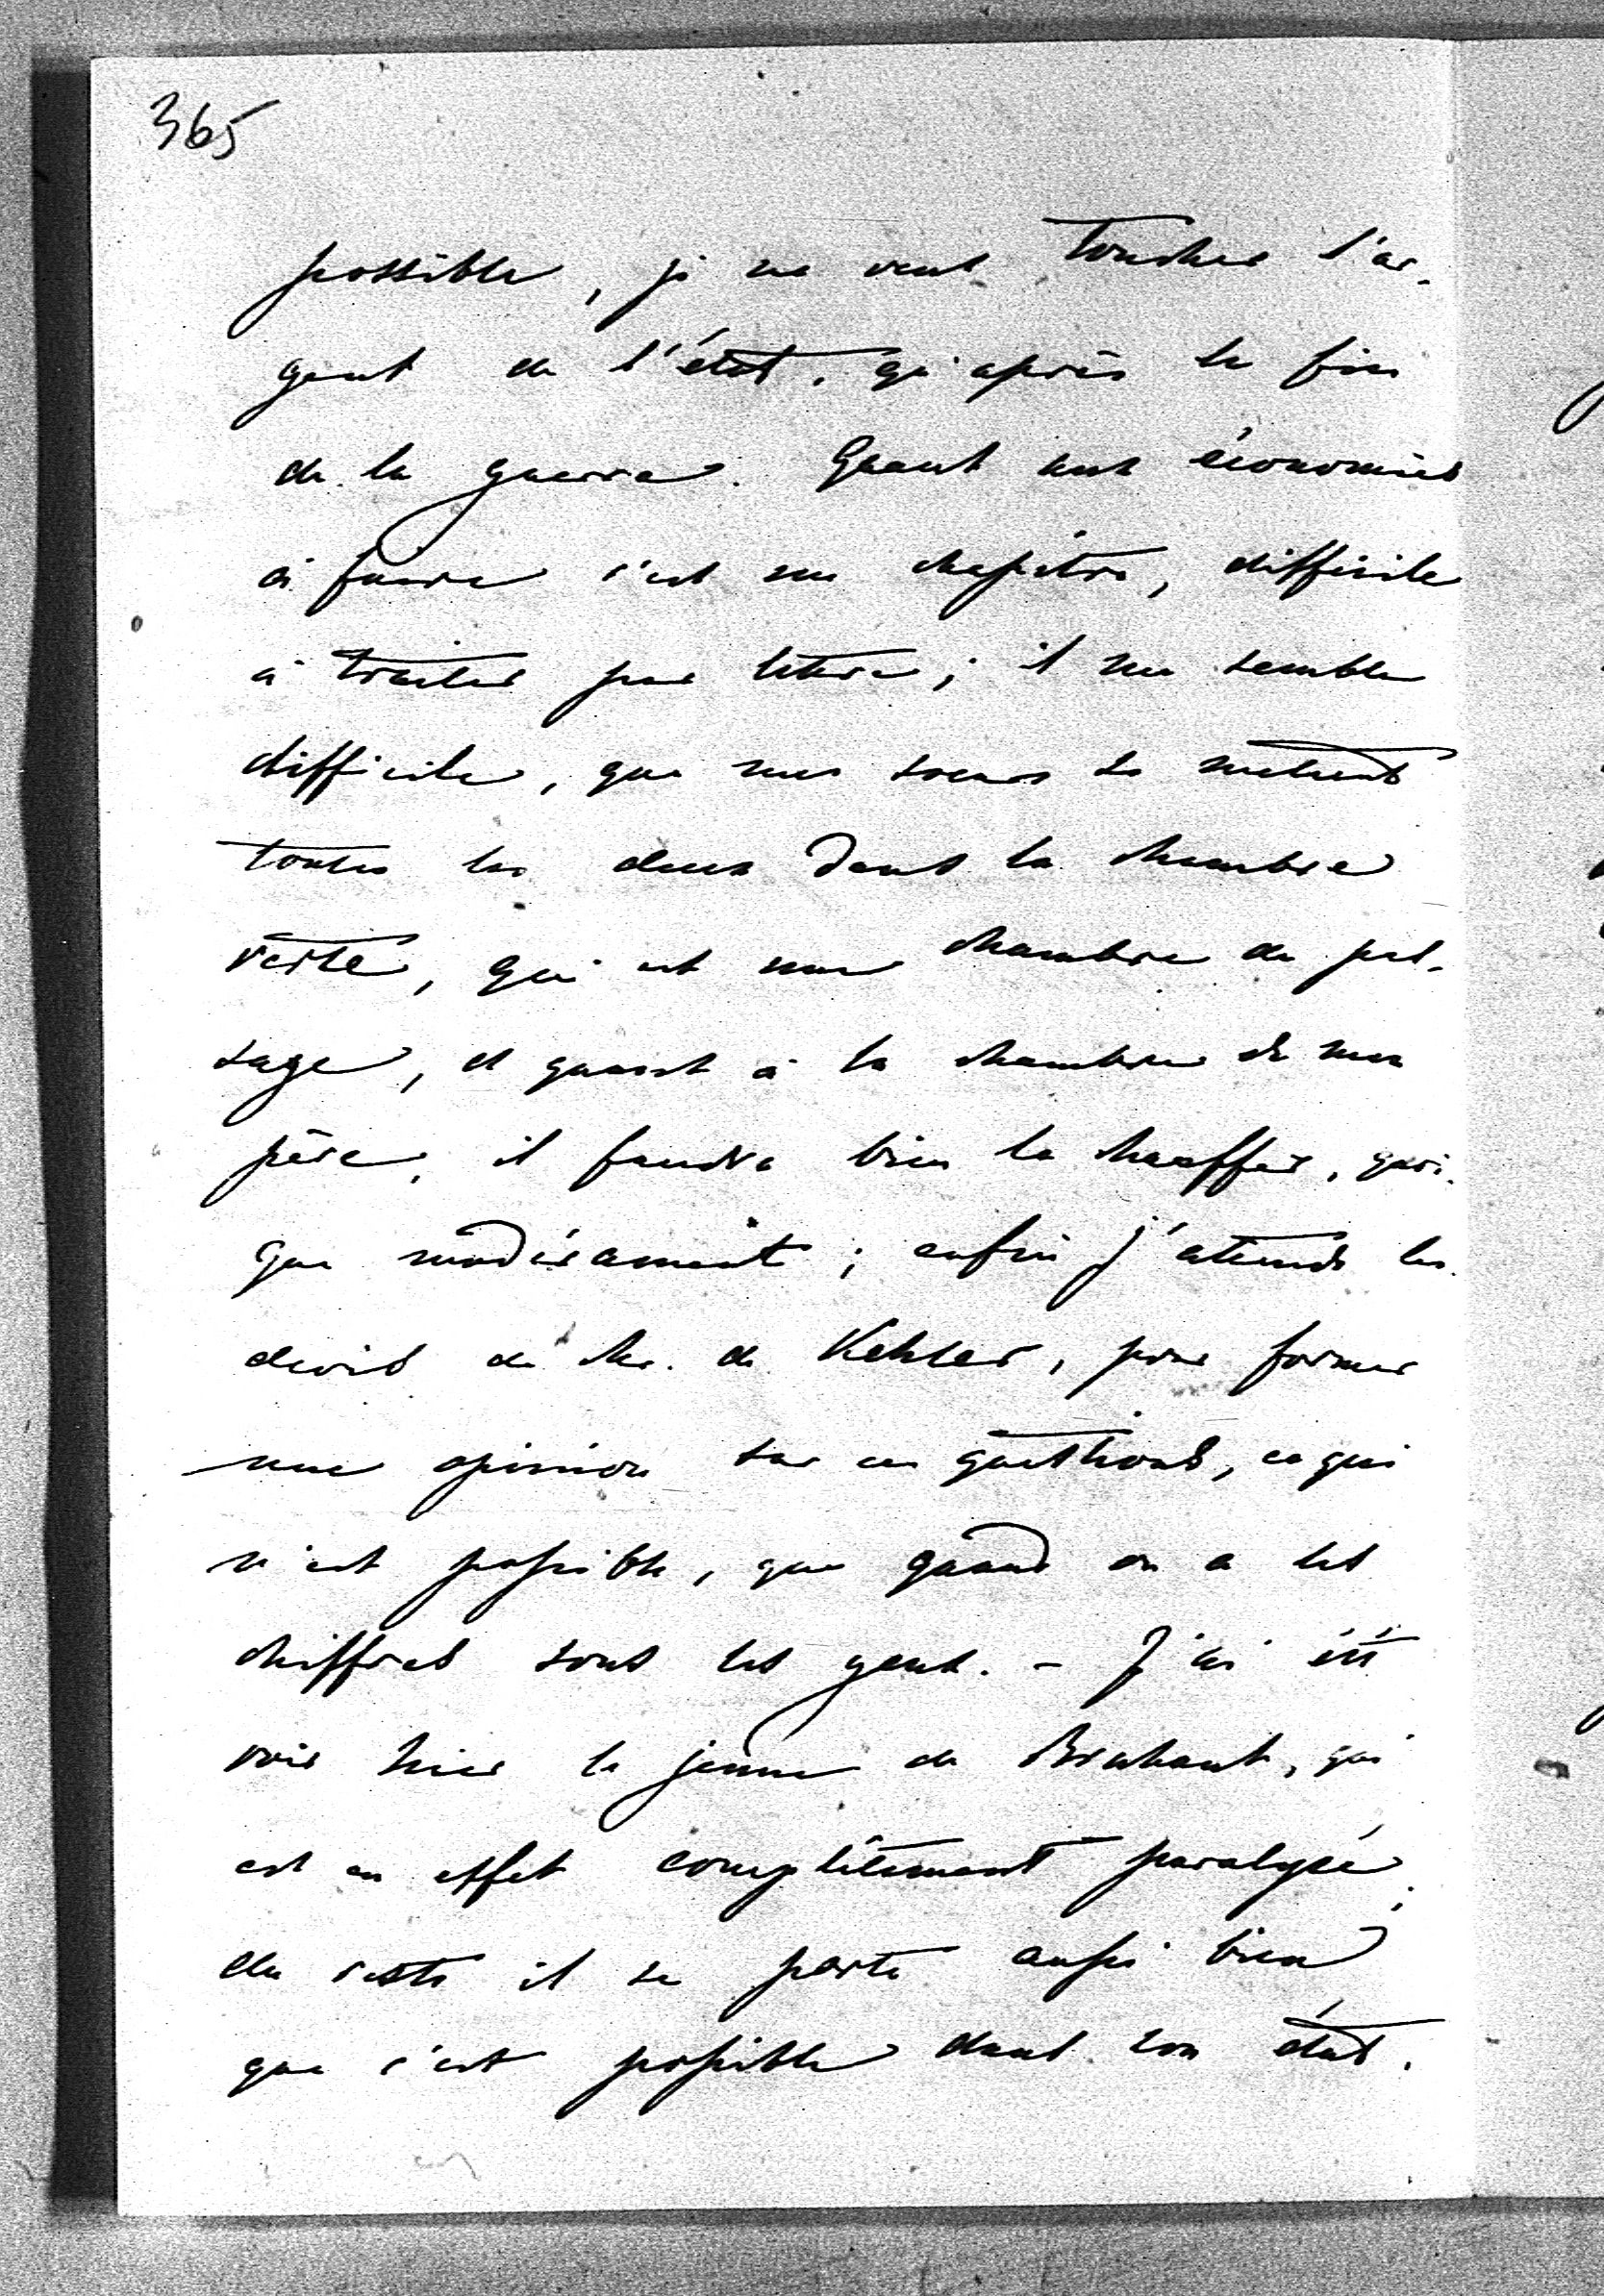 365
possible, je ne veut toucher l'ar-
gent de l'état, qu'après la fin
de la guerre. Quant aux économies
à faire c'est un chapitre, difficile
à traiter par lettre; il me semble
difficile, que mes soeurs se mettent
toutes les deux dans la chambre
verte, qui est une chambre de pas-
sage, et quant à la chambre de mon
père, il faudra bien la chauffer, quoi-
que modérament; enfin j'attends les
devis de Mr. de Kehler, pour former
une opinion sur ces questions, ce qui
n'est possible, que quand on a les
chiffres sous les yeux. - J'ai été
voir hier le jeune de Brabant, qui
est en effet complètement paralysé;
du reste il se porte aussi bien
que c'est possible dans son état.